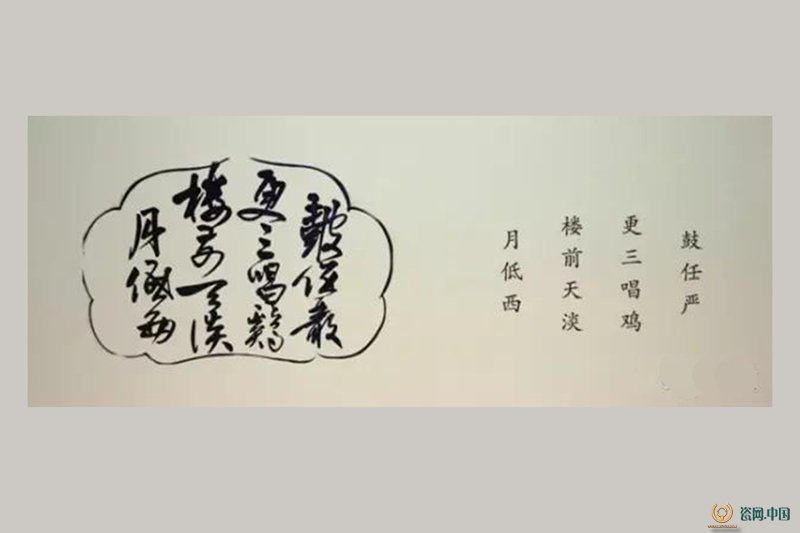 鼓任严
更三唱鸡
楼前天淡
月低西
皷任嚴
更三唱鷄
楼前天淡
月低西
瓷网.中国